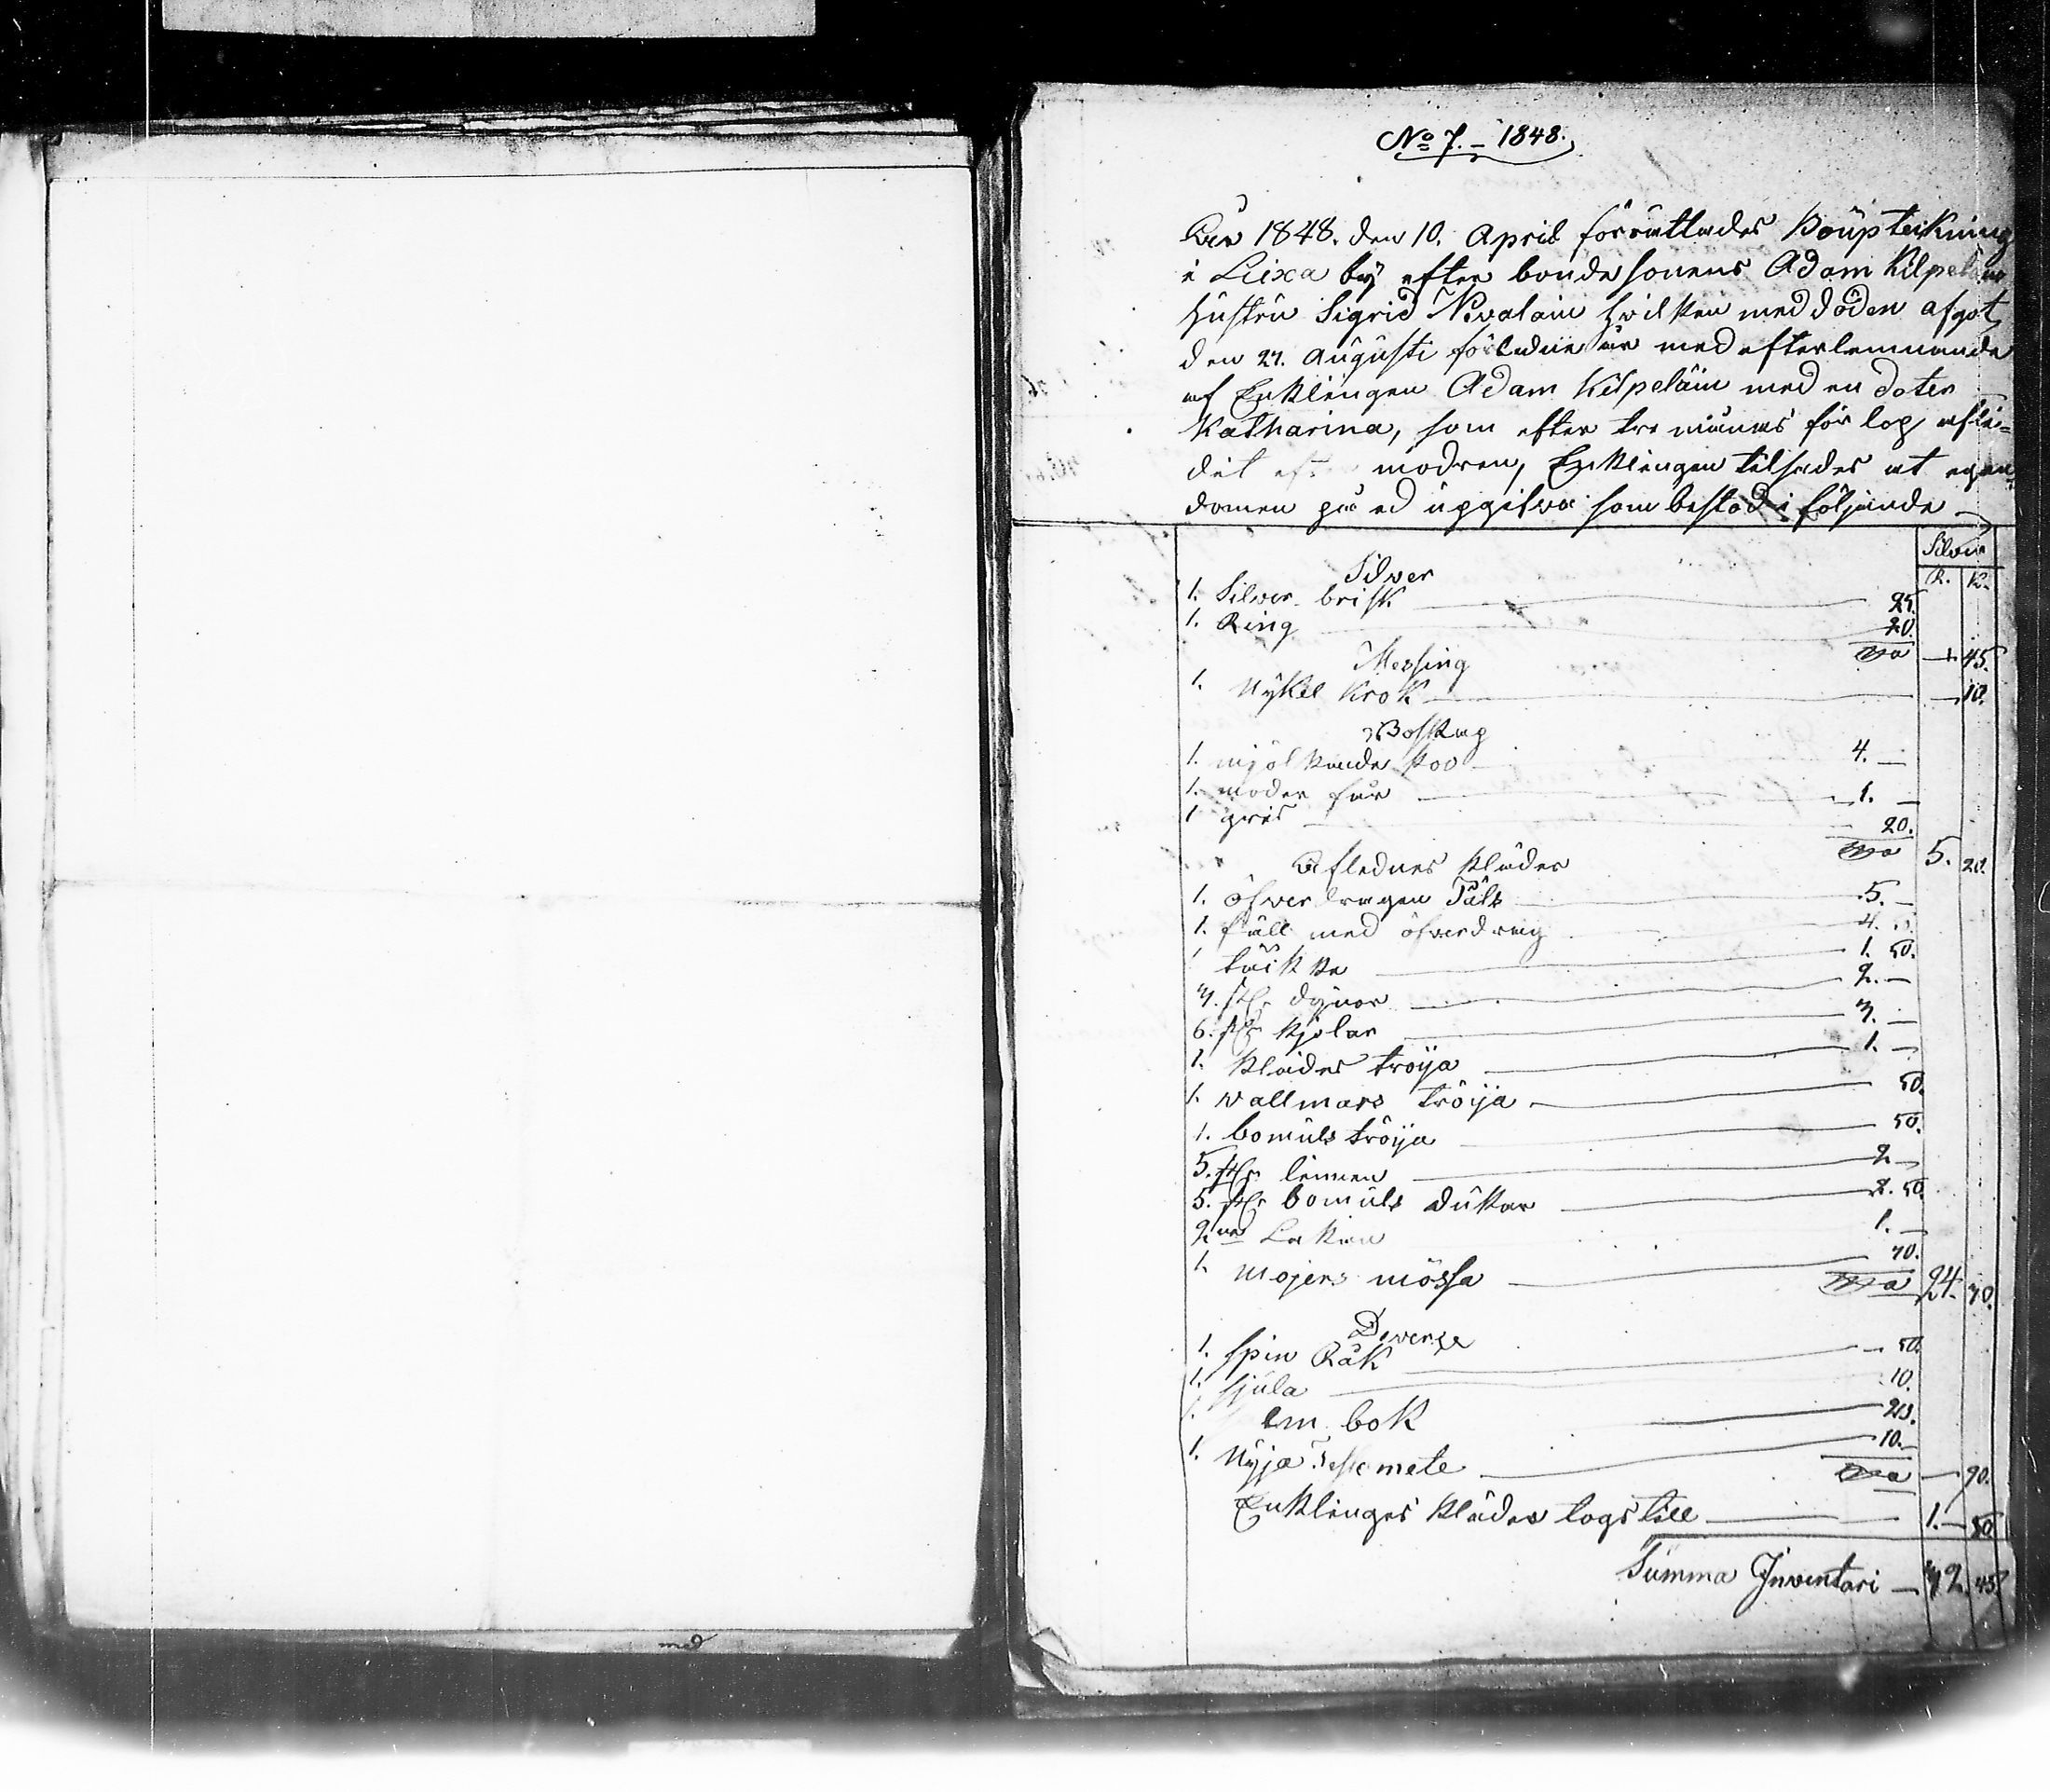 No 7. – 1848.
År 1848. den 10. April förrättades Boupteikning
i Liixa by efter bonde sonens Adam Kilpeläin
hustru Sigrid Nevalain hvilken med döden afgot
den 27. Augusti förledne år med efterlemnande
af Enklingen Adam Kilpeläin med en doter
Katharina, som efter tre månads förlop afli=
dit eft modren, Enklingen tilsades at egen=
domen på ed upgifva som bestod i följande
Silver
R. K.
Silver
1. Silver brisk 25.
1. Ring 20.
— 45.
Messing
1. Nykel krok — 10.
Boskap
1. mjölkande koo 4. —
1. moder får 1. —
1 gris 20.
5. 20.
Aflednes kläder
1. öfverdragen Päls 5. —
1. fäll med öfverdrag 4.
1 täikke 1. 50.
3. st. dynor 2. —
6. st. kjolar 3. —
1. klädes tröija 1. —
1. wallmars tröija 50.
1. bomuls tröija 50.
5. st. linnen 2 —
5. st. bomuls dukar 2. 50.
2ne Lakan 1. —
1. mojers mössa 70.
24. 70.
Diverse
1. spin Råk 50.
1. sjula 10.
1. bok 20.
1. Nyja Testamete 10.
— 90.
Enklinges kläder togs till 1. — 50
Summa Inventari — 32. 45.
med